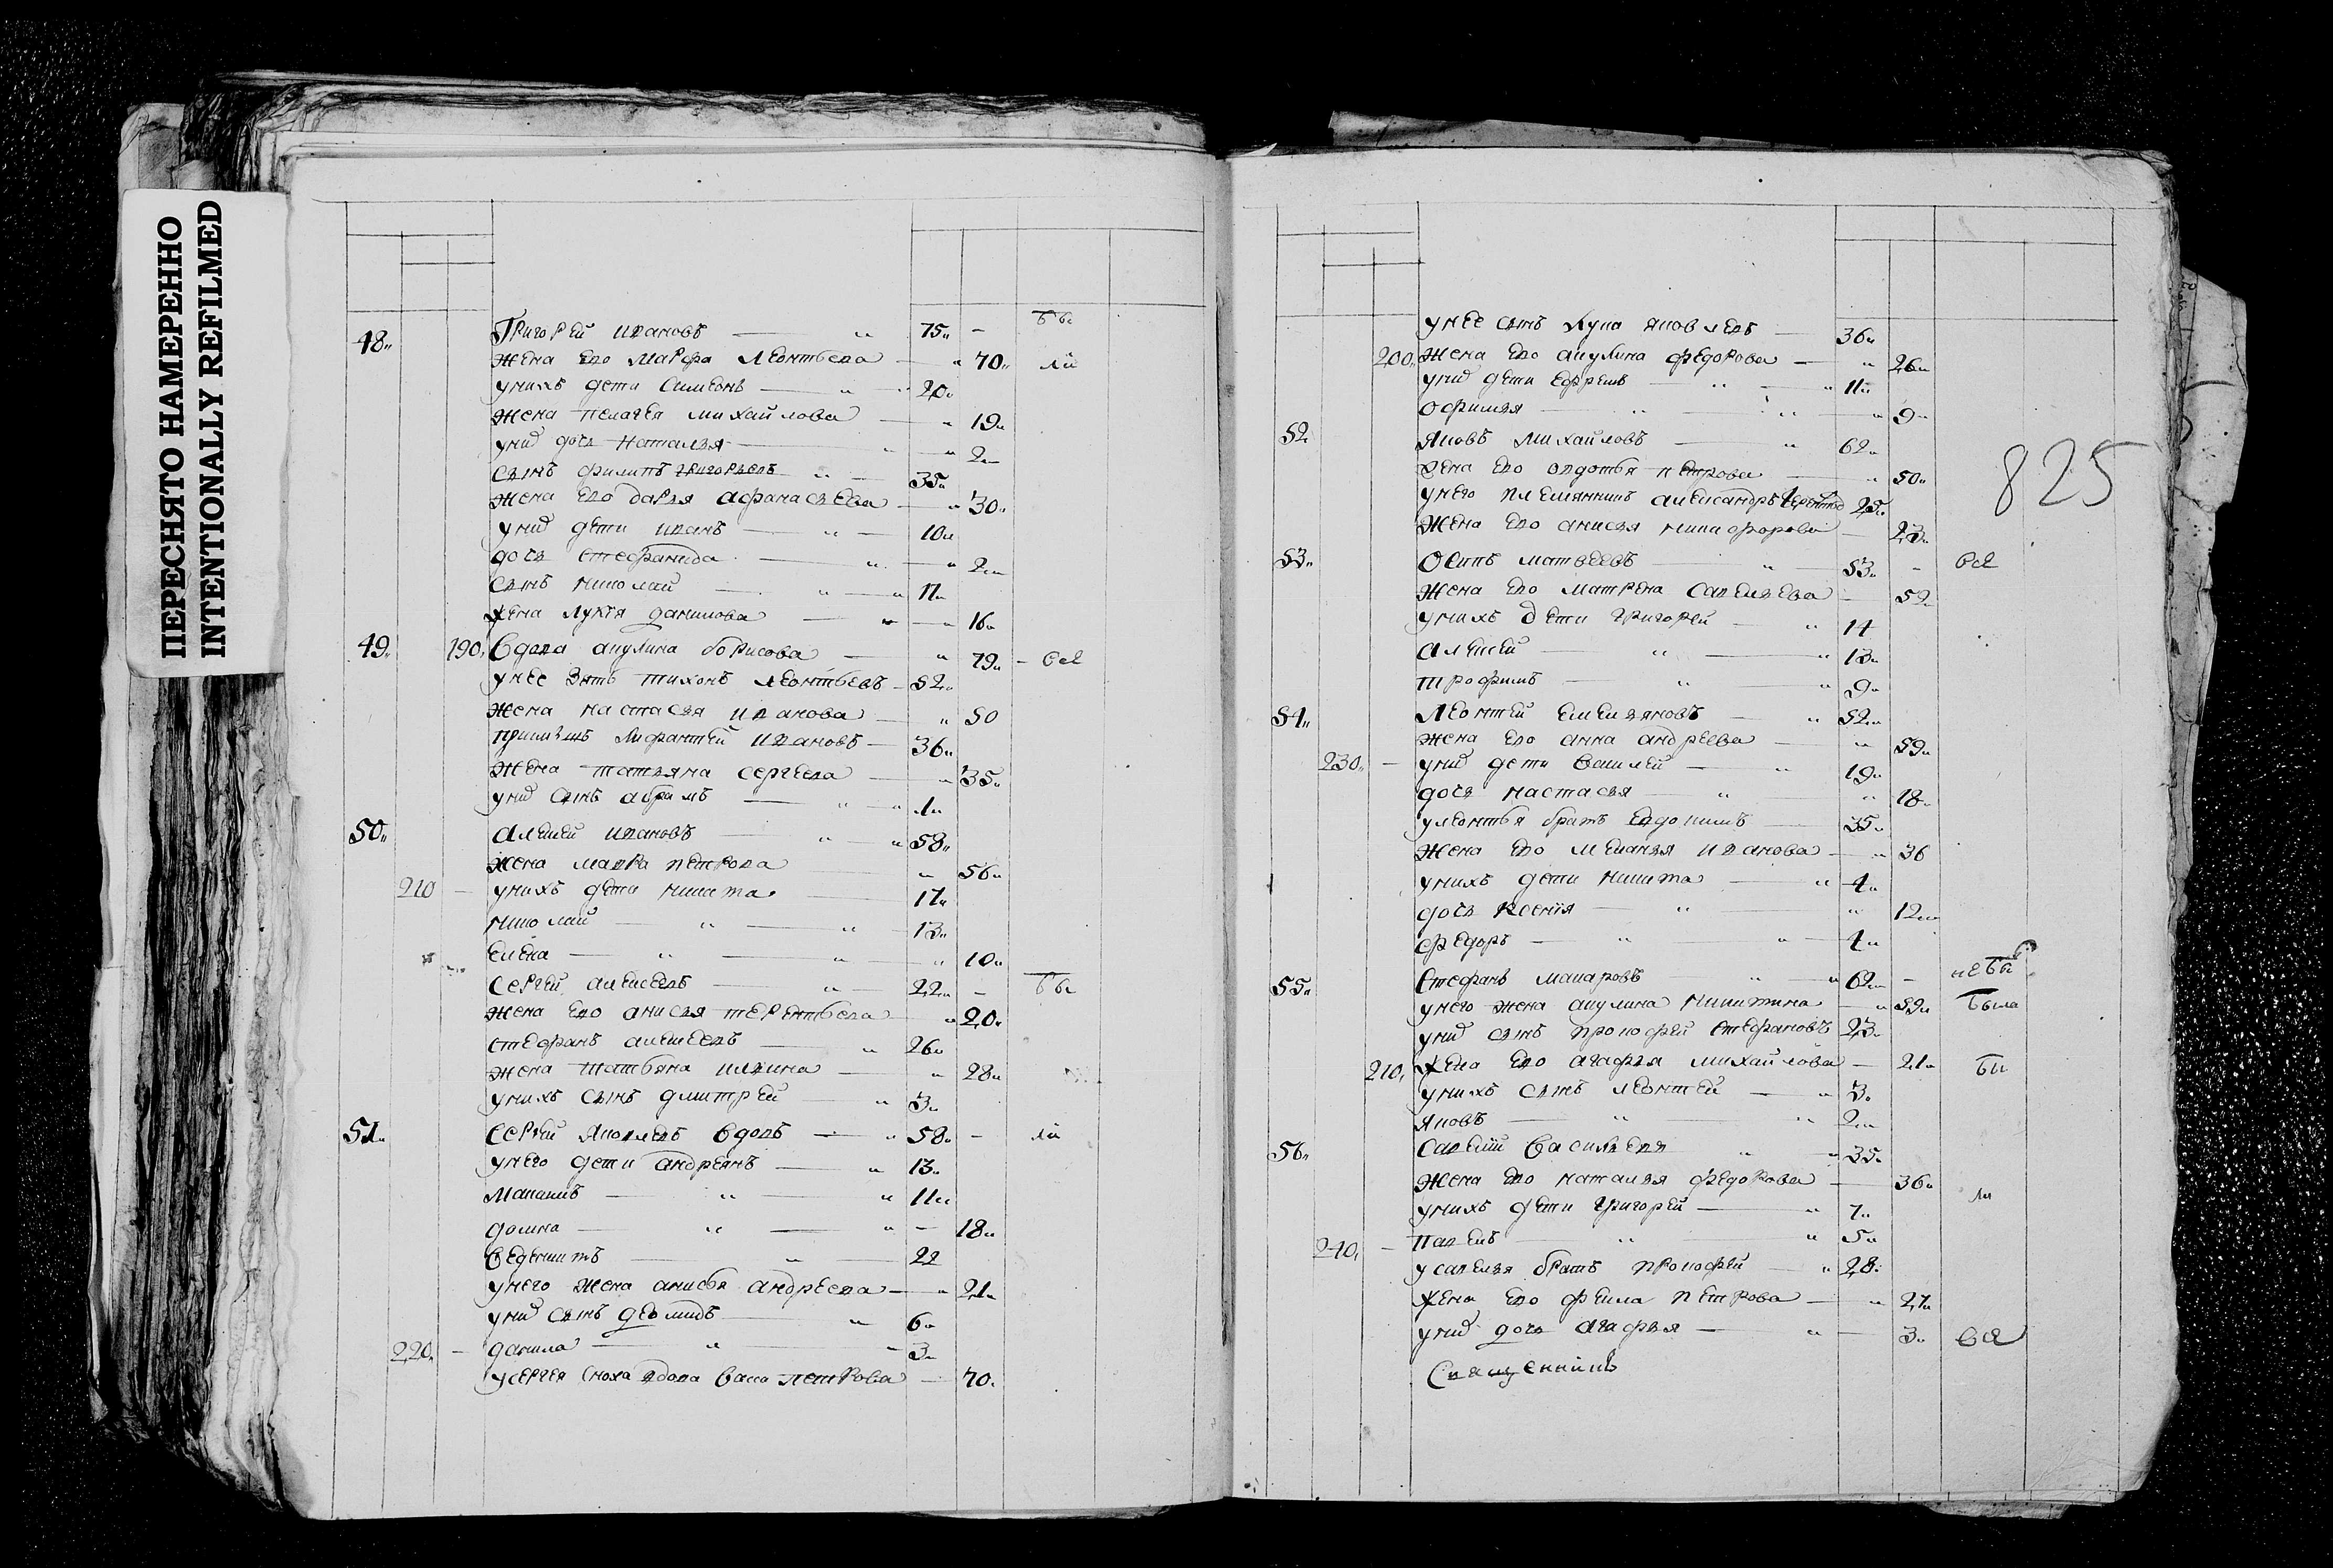 ПЕРЕСНЯТО НАМЕРЕННО
INTENTIONALLY REFILMED
48 Григорей Ивановъ 75 - бы
жена ево Марфа Леонтьева 70 ли
у нихъ дети Симеонъ 20
жена Пелагея Михайлова 19
у них дочь Наталья 2
сынъ Филипъ Григорьевъ 35
жена ево Дарья Афанасьева 30
у них дети Иванъ 10
дочь Стефанида 2
сынъ Николай 17
жена Лукія Данилова 16
49 190 вдова Акулина Борисова 79 - все
у нее зять Тихонъ Леонтьевъ 52
жена Настасья Иванова 50
Ивановъ 36
жена Татьяна Сергеева 35
у них сынъ Абрамъ 1
50 Алексей Ивановъ 58
жена Мавра Петрова 56
210 - у нихъ дети Никита 17
Николай 13
Елена 10
Сергей Алексеевъ 22 - бы
жена ево Анисья Терентьева 20
Стефанъ Алексеевъ 26
жена Татьяна Ильина 28
у нихъ сынъ Дмитрей 3
51 Сергей Яковлевъ вдовъ 58 - ли
у него дети Андреянъ 13
11
18
Ведениктъ 22
у него жена Анисья Андреева 21
у них сынъ Демидъ 6
220 - Данила 3
у Сергея сноха вдова Васа Петрова 70
у нее сынъ Лука Яковлевъ 36
200 жена ево Акулина Федорова 26
у них дети Ефремъ 11
Офимья 9
52 Яковъ Михайловъ 62
жена ево Овдотья Петрова 50
у него племянникъ Александръ 25
жена ево Анисья Никифорова 23
825
53 Осипъ Матвеевъ 53 - все
жена ево Матрена Савельева 52
у нихъ дети Григорей 14
Алексей 13
Трофимъ 9
54 Леонтей Емельяновъ 52
жена ево Анна Андреева 59
230 - у них дети Василей 19
дочь Настасья 18
у Леонтья братъ Евдокимъ 35
жена ево Меланья Иванова 36
у нихъ дети Никита 4
дочь Ксенія 12
Федоръ 1
55 Стефанъ Макаровъ 62 - не бы
у него жена Акулина Никитина 59 была
у них сынъ Прокофей Стефановъ 23
210 жена ево Агафья Михайлова 21 бы
у нихъ сынъ Леонтей 3
Яковъ 2
56 Савелій Васильевъ 35
жена ево Наталья Федорова 36 ли
у нихъ дети Григорей 7
240 - Павелъ 5
у Савелья братъ Прокофей 28
жена ево Фекла Петрова 27
у них дочь Агафья 3 все
Священникъ